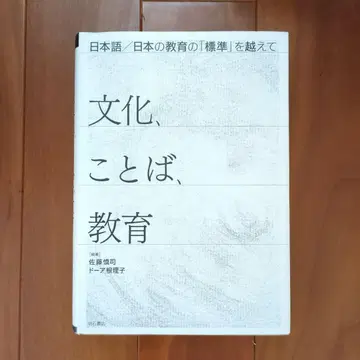 日本語／日本の教育の「標準」を越えて
文化、
ことば、
教育
[編著]
佐藤慎司
ドーア根理子
明石書店